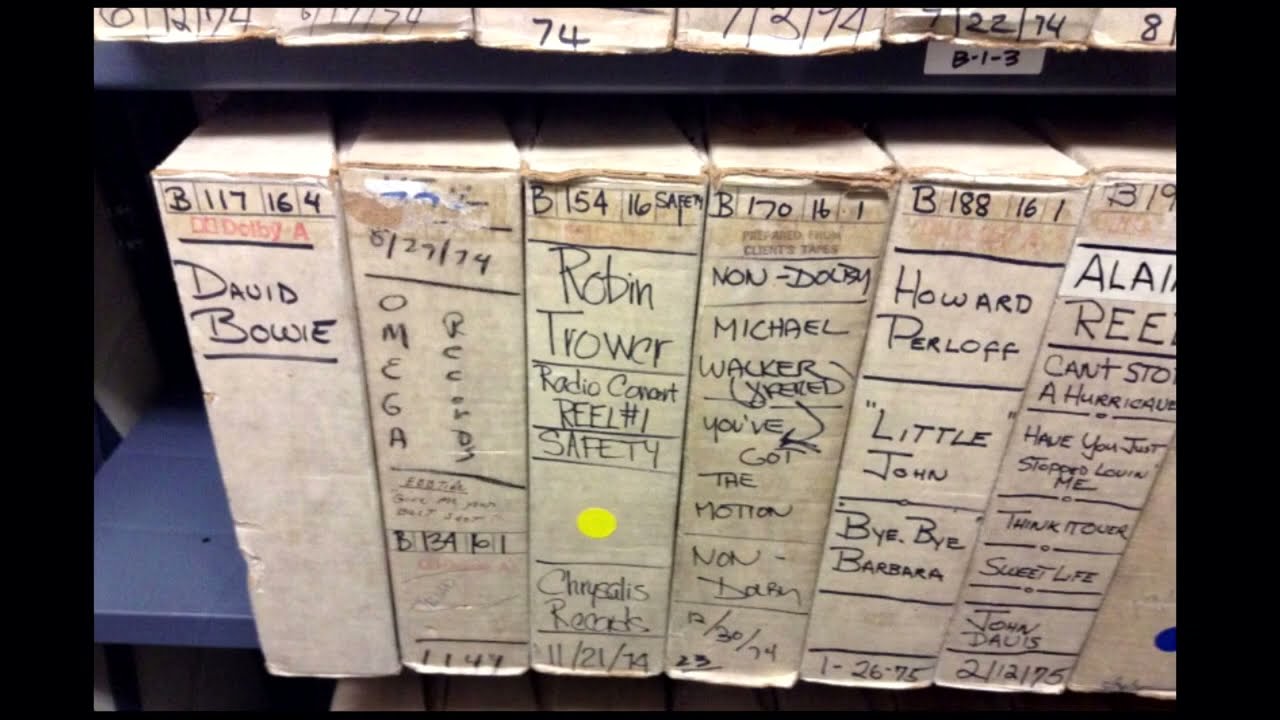 6/12/74
74
7/3/74
7/22/74
8
B-1-3
B 117 16 4
Dolby A
DAVID
BOWIE
8/27/74
OMEGA
Records
EBBTIDE
B 134 16 1
B 154 16 SAFETY
Robin
Trower
Radio Concert
REEL #1
SAFETY
Chrysalis
Records
11/21/74
B 170 16 1
PREPARED FROM
CLIENT'S TAPES
NON-DOLBY
MICHAEL
WALKER
YOU'VE
GOT
THE
MOTION
NON-
DOLBY
12/30/74
23
B 188 16 1
HOWARD
PERLOFF
"LITTLE
JOHN"
BYE. BYE
BARBARA
1-26-75
B 19
ALAI
REE
CAN'T STO
A HURRICANE
HAVE YOU JUST
STOPPED LOVIN'
ME
THINK IT OVER
SWEET LIFE
JOHN
DAVIS
2/12/75